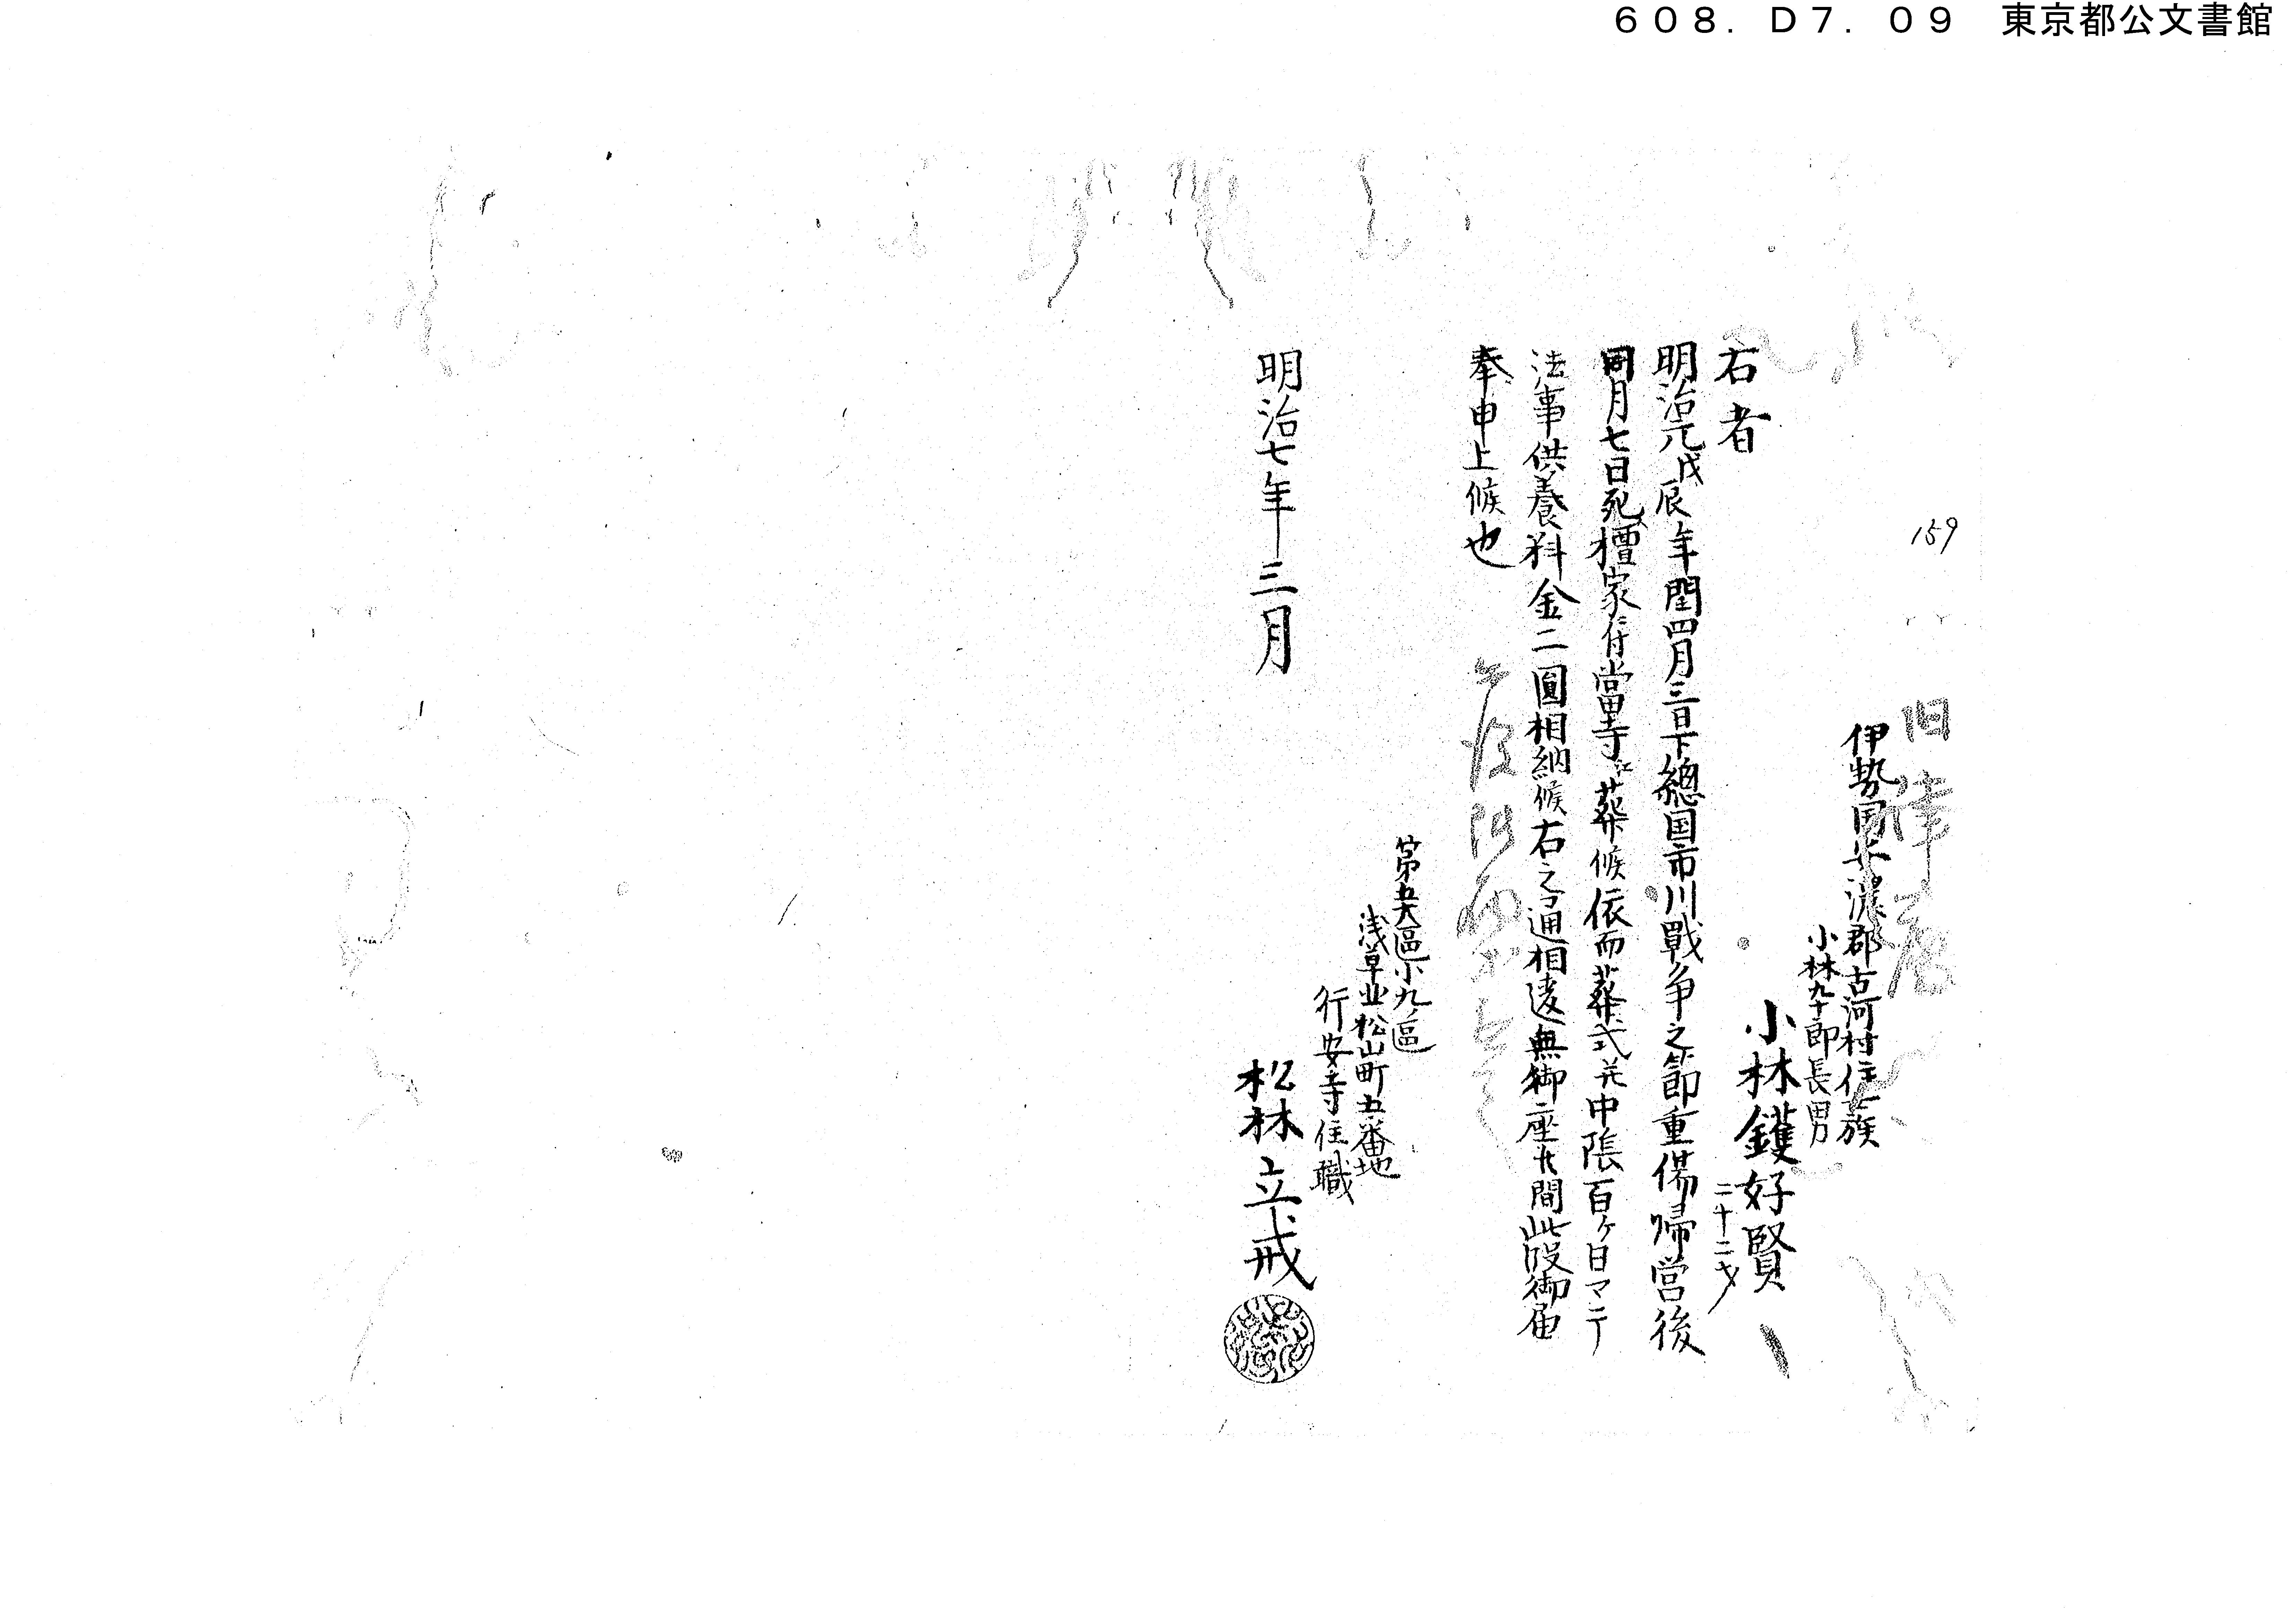 608. D7. 09 東京都公文書館
159
旧津藩
伊勢国安濃郡古河村住士族
小林九十郎長男
小林鑊好賢
二十二才
右者
明治元戊辰年閏四月三日下總国市川戰争之節重傷帰営後
同月七日死ス檀家ニ付當寺江葬候依而葬式并中陰百ヶ日マテ
法事供養料金二圓相納候右之通相違無御座候間此段御届
奉申上候也
第五大區小九區
浅草北松山町五番地
行安寺住職
松林立戒
明治七年三月